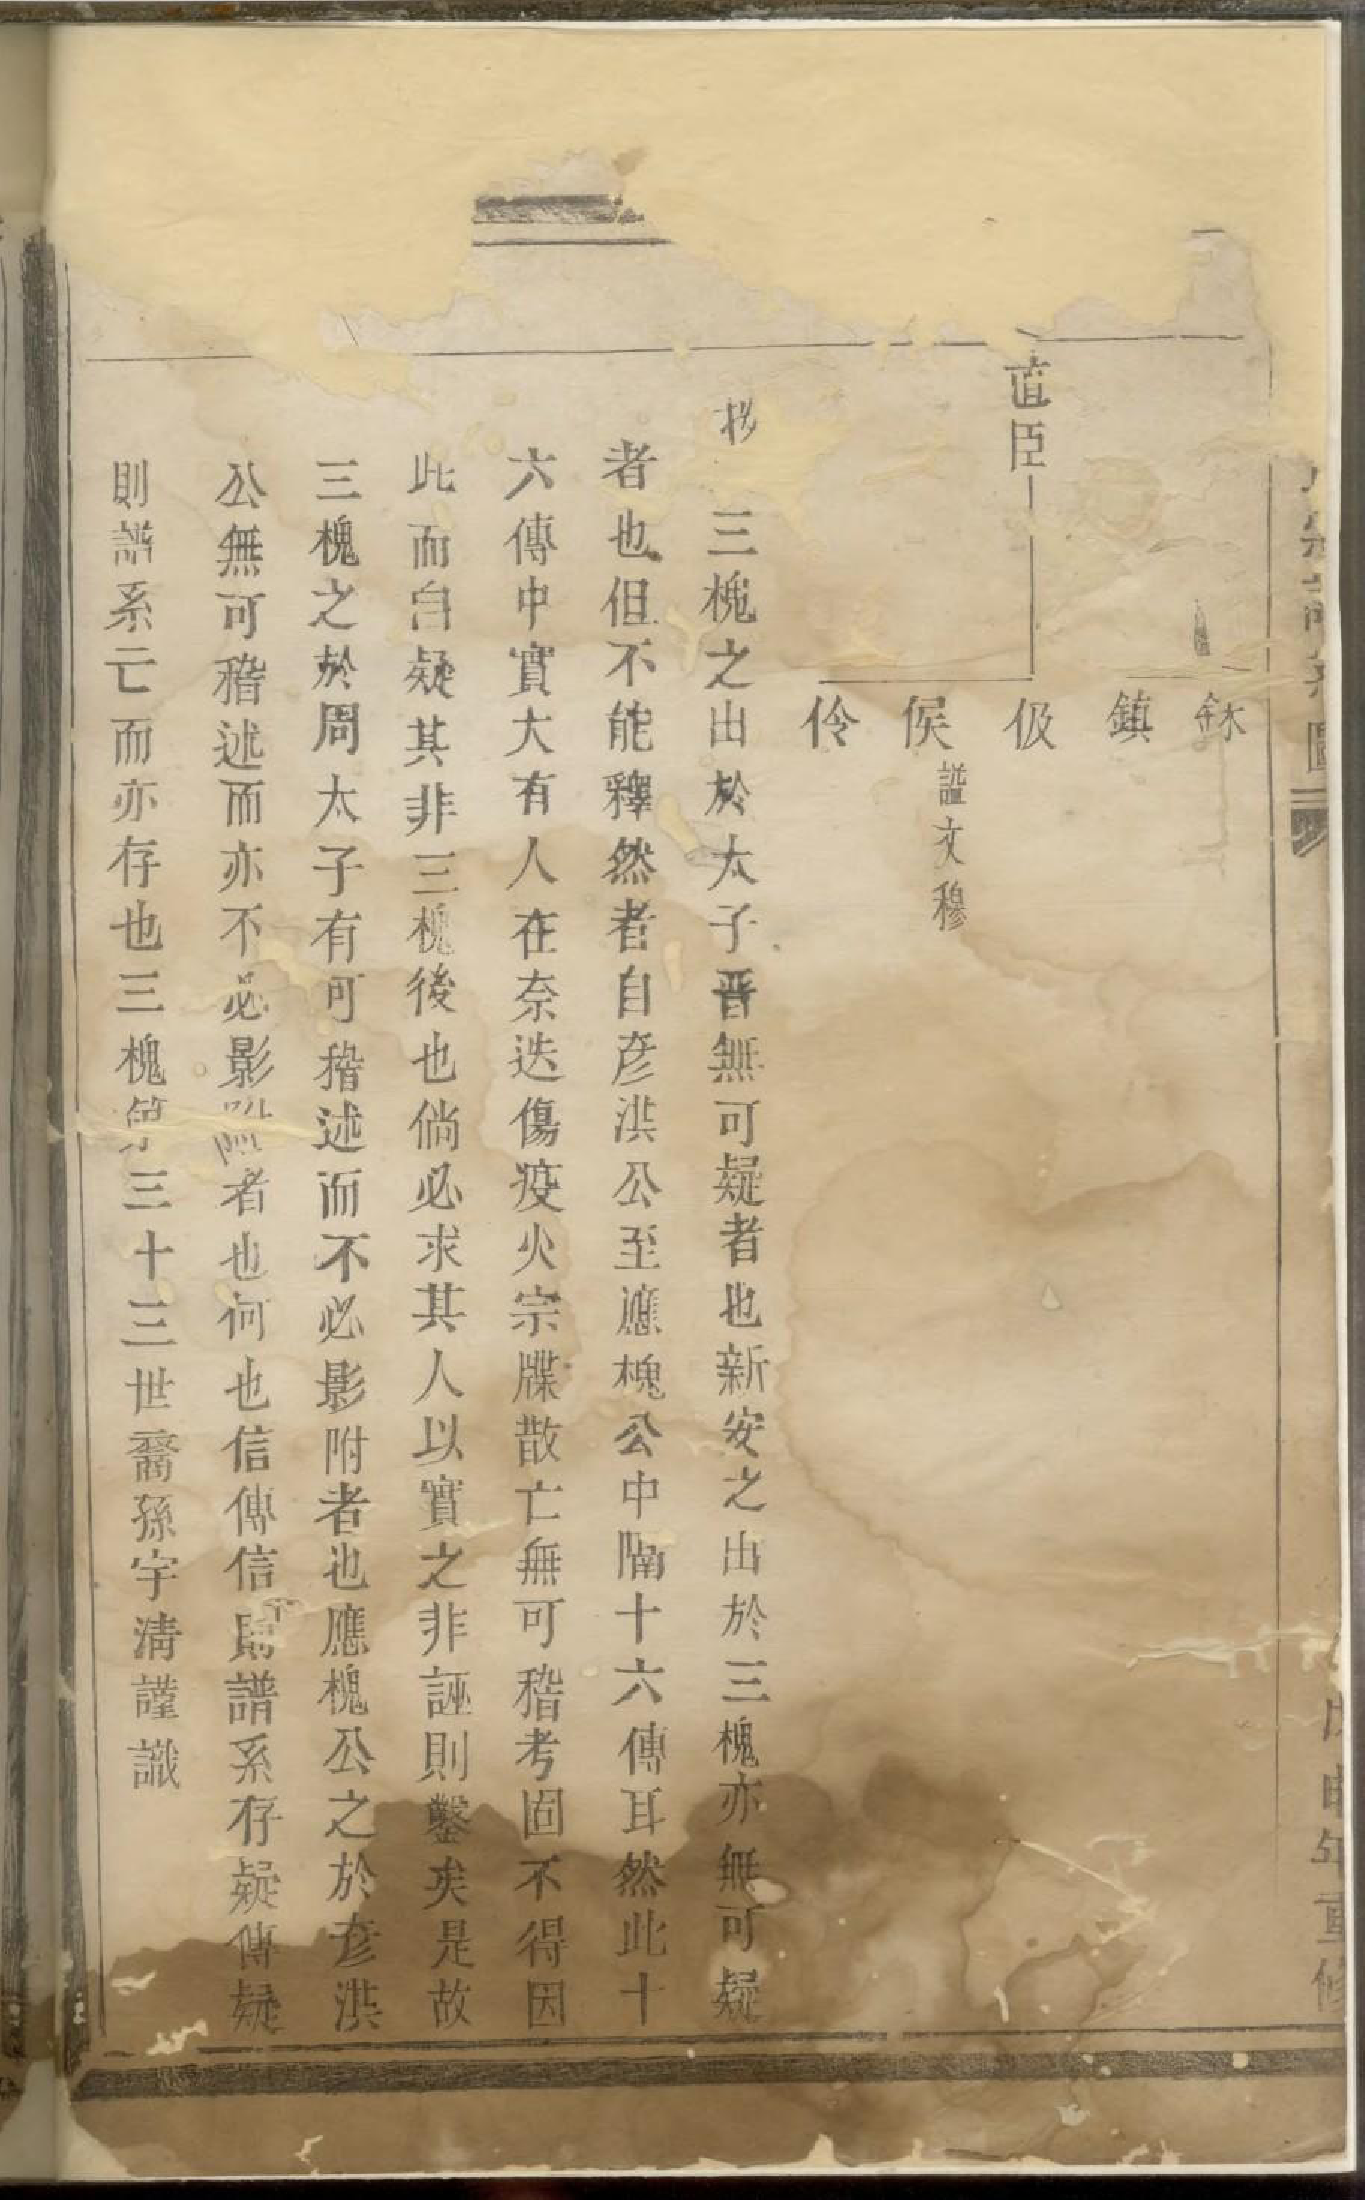 圖二
戊申年重修
鉌
鎮
道臣
伋
俟 諡文穆
伶
按三槐之出於太子晋無可疑者也新安之出於三槐亦無可疑
者也但不能釋然者自彦洪公至應槐公中隔十六傳耳然此十
六傳中實大有人在奈迭傷疫火宗牒散亡無可稽考固不得因
此而自疑其非三槐後也倘必求其人以實之非誣則鑿矣是故
三槐之於周太子有可稽述而不必影附者也應槐公之於彦洪
公無可稽述而亦不必影附者也何也信傳信則譜系存疑傳疑
則譜系亡而亦存也三槐第三十三世裔孫宇淸謹識